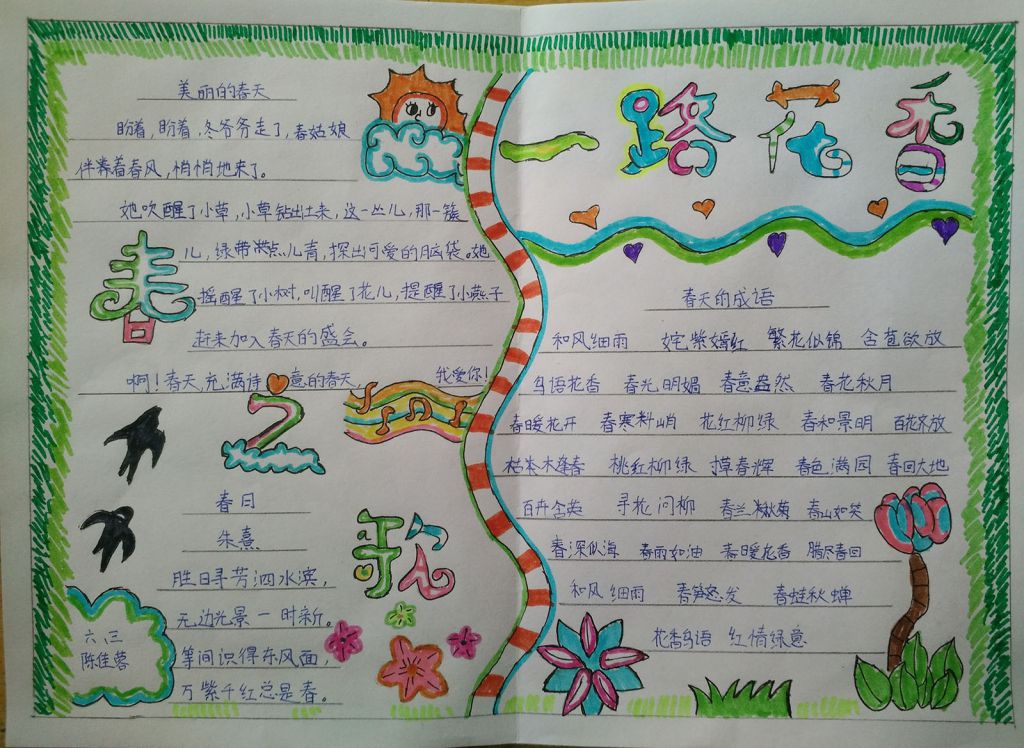 美丽的春天
盼着,盼着,冬爷爷走了,春姑娘
伴着春风,悄悄地来了。
她吹醒了小草,小草钻出土来,这一丛儿,那一簇
儿,绿带点儿青,探出可爱的脑袋。她
摇醒了小树,叫醒了花儿,提醒了小燕子
赶来加入春天的盛会。
啊!春天,充满诗意的春天, 我爱你!
春
之
歌
春日
朱熹
胜日寻芳泗水滨,
无边光景一时新。
等闲识得东风面,
万紫千红总是春。
六.三
陈佳蓉
一路花香
春天的成语
和风细雨 姹紫嫣红 繁花似锦 含苞欲放
鸟语花香 春光明媚 春意盎然 春花秋月
春暖花开 春寒料峭 花红柳绿 春和景明 百花齐放
枯木逢春 桃红柳绿 寸草春辉 春色满园 春回大地
百卉含英 寻花问柳 春兰秋菊 春山如笑
春深似海 春雨如油 春暖花香 腊尽春回
和风细雨 春笋怒发 春蛙秋蝉
花香鸟语 红情绿意